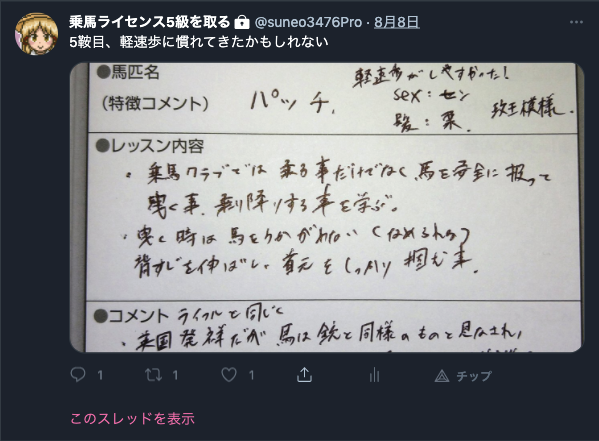 乗馬ライセンス5級を取る @suneo3476Pro · 8月8日
5鞍目、軽速歩に慣れてきたかもしれない
●馬匹名
軽速歩がしやすかった!
(特徴コメント) パッチ.
sex:セン
髪:栗. 玟王模様.
●レッスン内容
・乗馬クラブでは 乗る事だけでなく 馬を安全に扱って
曳く事、乗り降りする事を学ぶ。
・曳く時は 馬をうかがわない(なめられる)
背すじを伸ばして 首元をしっかり掴む事.
●コメント ライフルと同じく
・英国発祥だが 馬は銃と同様のものと見なされ、
1
1
1
チップ
このスレッドを表示